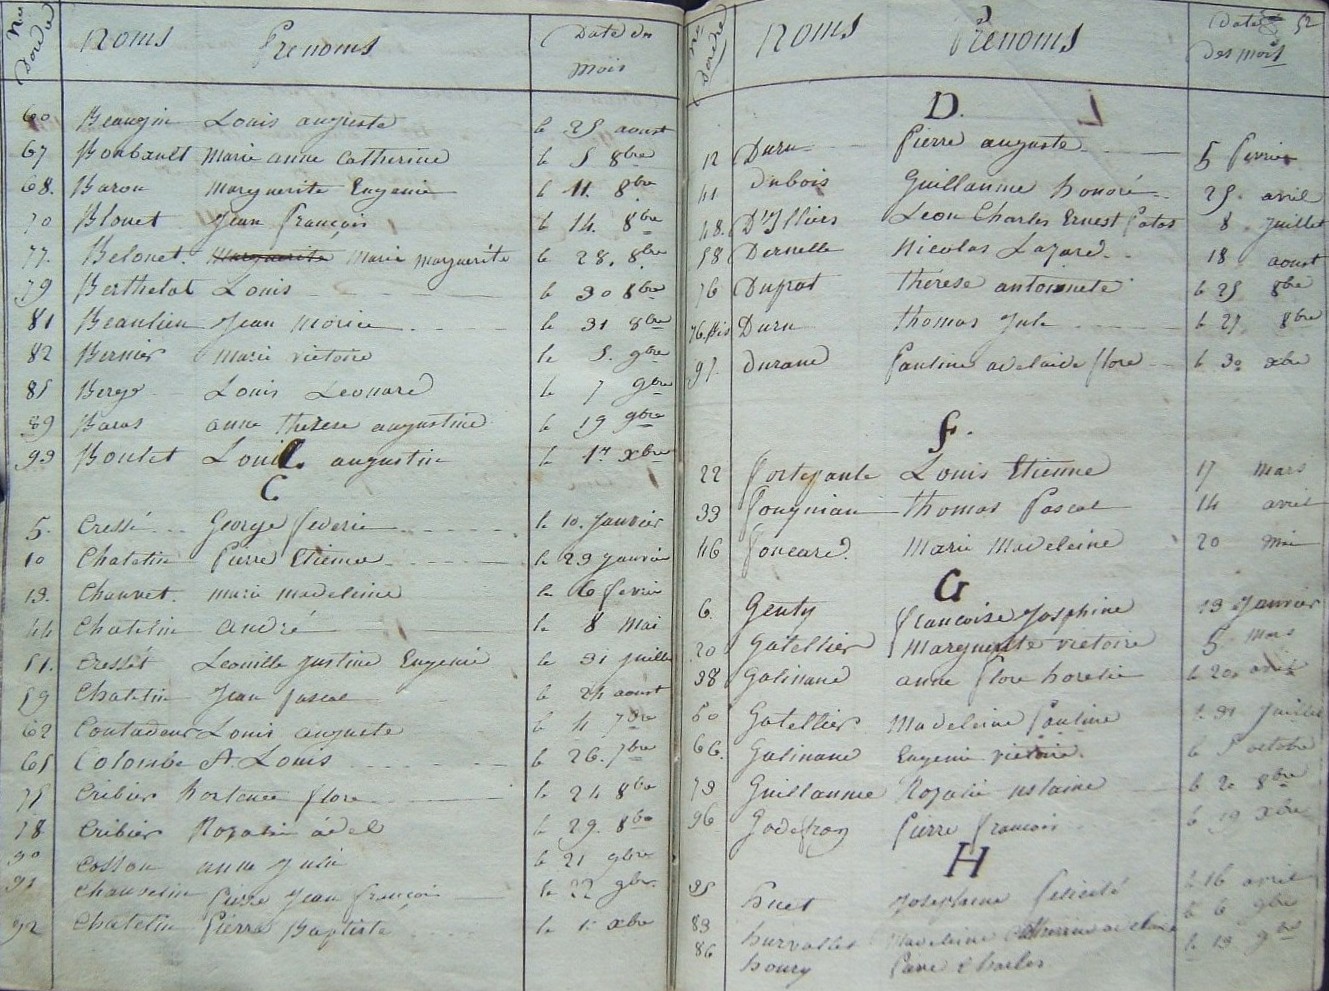 No d'ordre Noms Prenoms Date du mois
60 Beaugin Louis auguste le 25 aoust
67 Boubault Marie anne Catherine le 5 8bre
68. Baron Marguerite Eugenie le 11. 8bre
70 Blouet Jean françois le 14. 8bre
77. Belouet. Marguerite Marie Marguérite le 28. 8bre
79 Berthelot Louis le 30 8bre
81 Beaulieu Jean Morice le 31 8bre
82 Bernier Marie victoire le 5. 9bre
85 Berge Louis Leonard le 7 9bre
89 Baras anne therese augustine le 19 9bre
99 Boulet Louis augustin le 1er Xbre
C
5. Cressé George federic le 10. Janvier
10 Chatelin Pierre Etienne le 23 Janvier
13. Chauvet. marie madeleine le 6 fevrier
44 Chatelin andré le 8 Mai
51. Cressét Leonille Justine Eugenie le 31 Juillet
59 Chatelin Jean pascal le 24 aoust
62 Coutadeur Louis auguste le 4 7bre
65 Colombe A Louis le 26. 7bre
75 Cribier hortence flore le 24 8bre
78 Cribier Rozalie adel le 29. 8bre
90 Cosson anne Julie le 21 9bre
91 Chauvelin Pierre Jean françois le 22 9bre
92 Chatelin Pierre Baptiste le 1er xbre
No d'ordre Noms Prenoms Date des mois 52
D.
12 Duru Pierre auguste 5 fevrier
41 dubois Guillaume honoré 25. avril
48. D'Illiers Leon Charles Ernest Patas 8 Juillet
58 Dernelle Nicolas Lazard 18 aoust
76 Duprat thérèse antoinete le 25 8bre
76. Bis Duru thomas Jule le 25 8bre
97. durand Pauline adelaide flore le 30 xbre
F.
22 Louis Etienne 17 mars
39 fougniau thomas Pascal 14 avril
46 foucard. Marie Madeleine 20 Mai
G
6. Genty francoise Josphine 13 Janvier
20 Gatellier Marguerite victoire 5 Mars
38 Galinand anne flore le 20 avril
50 Gatellier Madeleine Pauline le 31 Juillet
66. Galinand Eugenie victoire. le 5 octobre
73 Guillaume Rozalie le 20 8bre
96 Godefroy Pierre francois le 19 Xbre
H
35 huet Josephine felicité le 16 avril
83 Madeleine Catherine adelaide le 6 9bre
86 houry Pierre Charles le 13 9bre